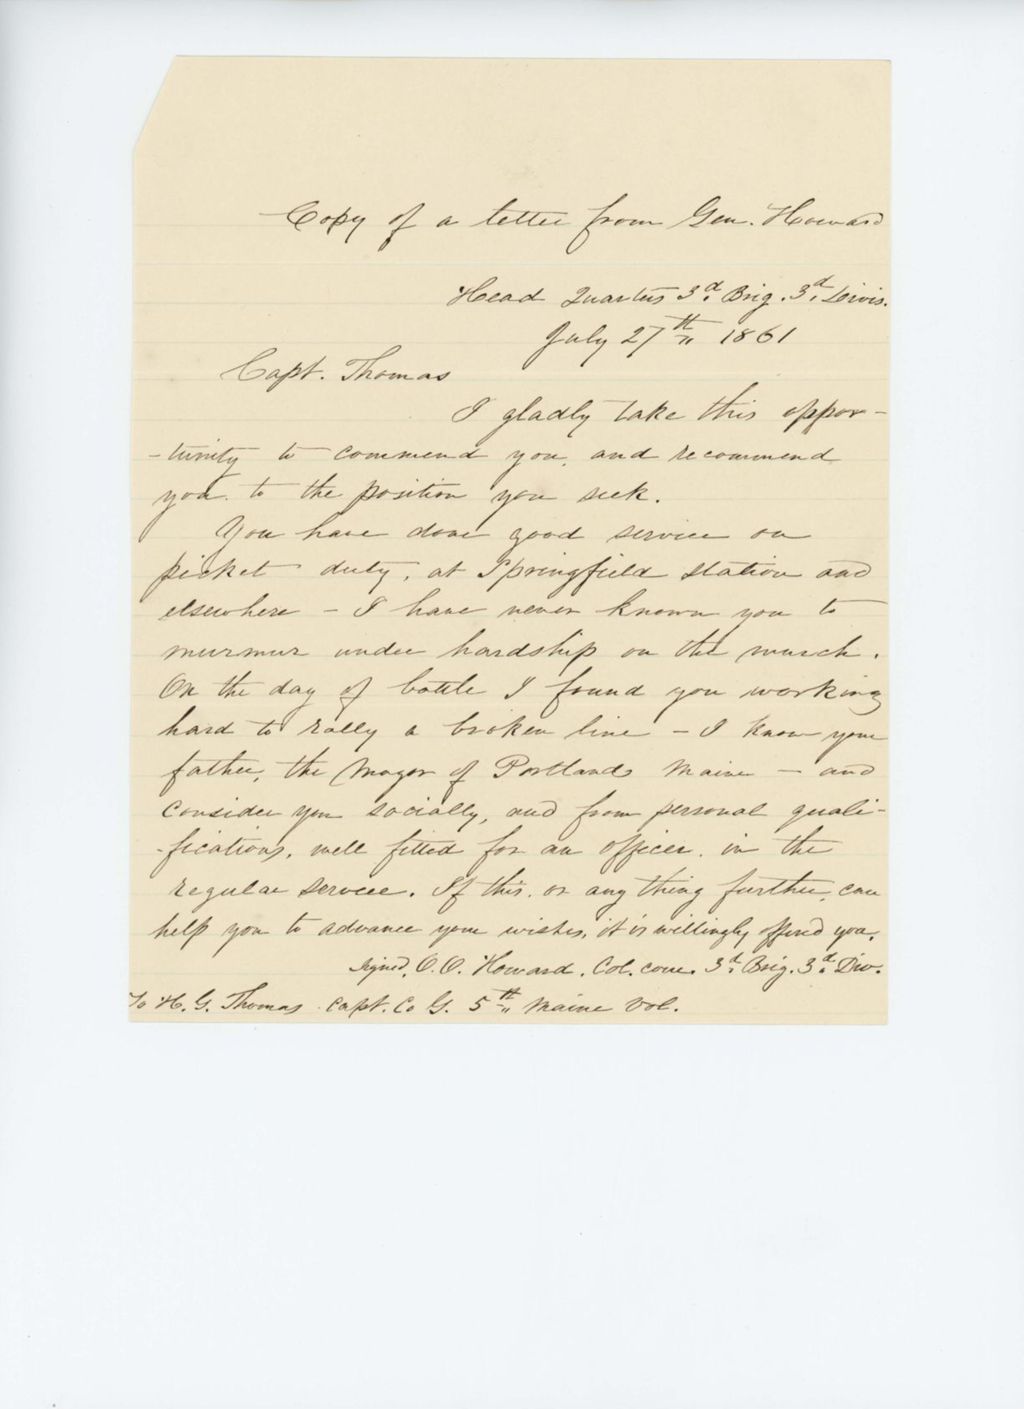 Copy of a letter from Gen. Howard
Head Quarters 3d. Brig. 3d. Divis.
July 27th 1861
Capt. Thomas
I gladly take this oppor-
-tunity to commend you, and recommend
you to the position you seek.
You have done good service on
picket duty, at Springfield station and
elsewhere - I have never known you to
murmur under hardship on the march.
On the day of battle I found you working
hard to rally a broken line - I know your
father, the Mayor of Portland Maine - and
consider you socially, and from personal quali-
-fications, well fitted for an officer in the
regular service. If this or any thing further, can
help you to advance your wishes, it is willingly offered you.
signed, O. O. Howard. Col. com. 3d. Brig. 3d. Div.
To H. G. Thomas Capt. Co G. 5th Maine Vol.